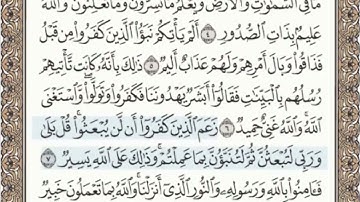 مَا فِي ٱلسَّمَٰوَٰتِ وَٱلْأَرْضِ وَيَعْلَمُ مَا تُسِرُّونَ وَمَا تُعْلِنُونَ وَٱللَّهُ
عَلِيمٌۢ بِذَاتِ ٱلصُّدُورِ ٤ أَلَمْ يَأْتِكُمْ نَبَؤُا۟ ٱلَّذِينَ كَفَرُوا۟ مِن قَبْلُ
فَذَاقُوا۟ وَبَالَ أَمْرِهِمْ وَلَهُمْ عَذَابٌ أَلِيمٌ ٥ ذَٰلِكَ بِأَنَّهُۥ كَانَت تَّأْتِيهِمْ
رُسُلُهُم بِٱلْبَيِّنَٰتِ فَقَالُوٓا۟ أَبَشَرٌ يَهْدُونَنَا فَكَفَرُوا۟ وَتَوَلَّوا۟ وَّٱسْتَغْنَى
ٱللَّهُ وَٱللَّهُ غَنِيٌّ حَمِيدٌ ٦ زَعَمَ ٱلَّذِينَ كَفَرُوٓا۟ أَن لَّن يُبْعَثُوا۟ قُلْ بَلَىٰ
وَرَبِّي لَتُبْعَثُنَّ ثُمَّ لَتُنَبَّؤُنَّ بِمَا عَمِلْتُمْ وَذَٰلِكَ عَلَى ٱللَّهِ يَسِيرٌ ٧
فَـَٔامِنُوا۟ بِٱللَّهِ وَرَسُولِهِۦ وَٱلنُّورِ ٱلَّذِيٓ أَنزَلْنَا وَٱللَّهُ بِمَا تَعْمَلُونَ خَبِيرٌ